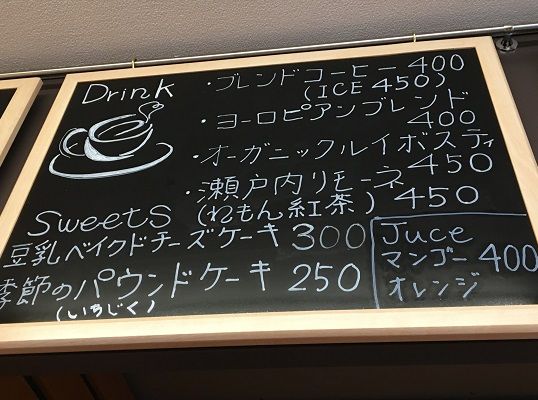 Drink
・ブレンドコーヒー400
(ICE 450)
・ヨーロピアンブレンド
400
・オーガニックルイボスティ
450
・瀬戸内リモーネ
(れもん紅茶) 450
Sweets
豆乳ベイクドチーズケーキ 300
季節のパウンドケーキ 250
(いちじく)
Juce
マンゴー 400
オレンジ